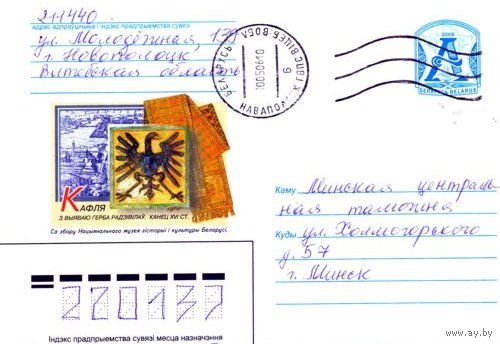 211440
адрас адпраўшчыка і індэкс прадпрыемства сувязі
ул. Молодёжная, 139
г. Новополоцк
Витебская область
БЕЛАРУСЬ
10050610
6
НАВАПОЛАЦК
2006
A
БЕЛАРУСЬ BELARUS
КАФЛЯ
З ВЫЯВАЮ ГЕРБА РАДЗІВІЛАЎ. КАНЕЦ XVI СТ.
Са збору Нацыянальнага музея гісторыі і культуры Беларусі.
Каму Минская централь-
ная таможня
Куды ул. Холмогорского
д. 57
г. Минск
220137
Індэкс прадпрыемства сувязі месца назначэння
www.ay.by